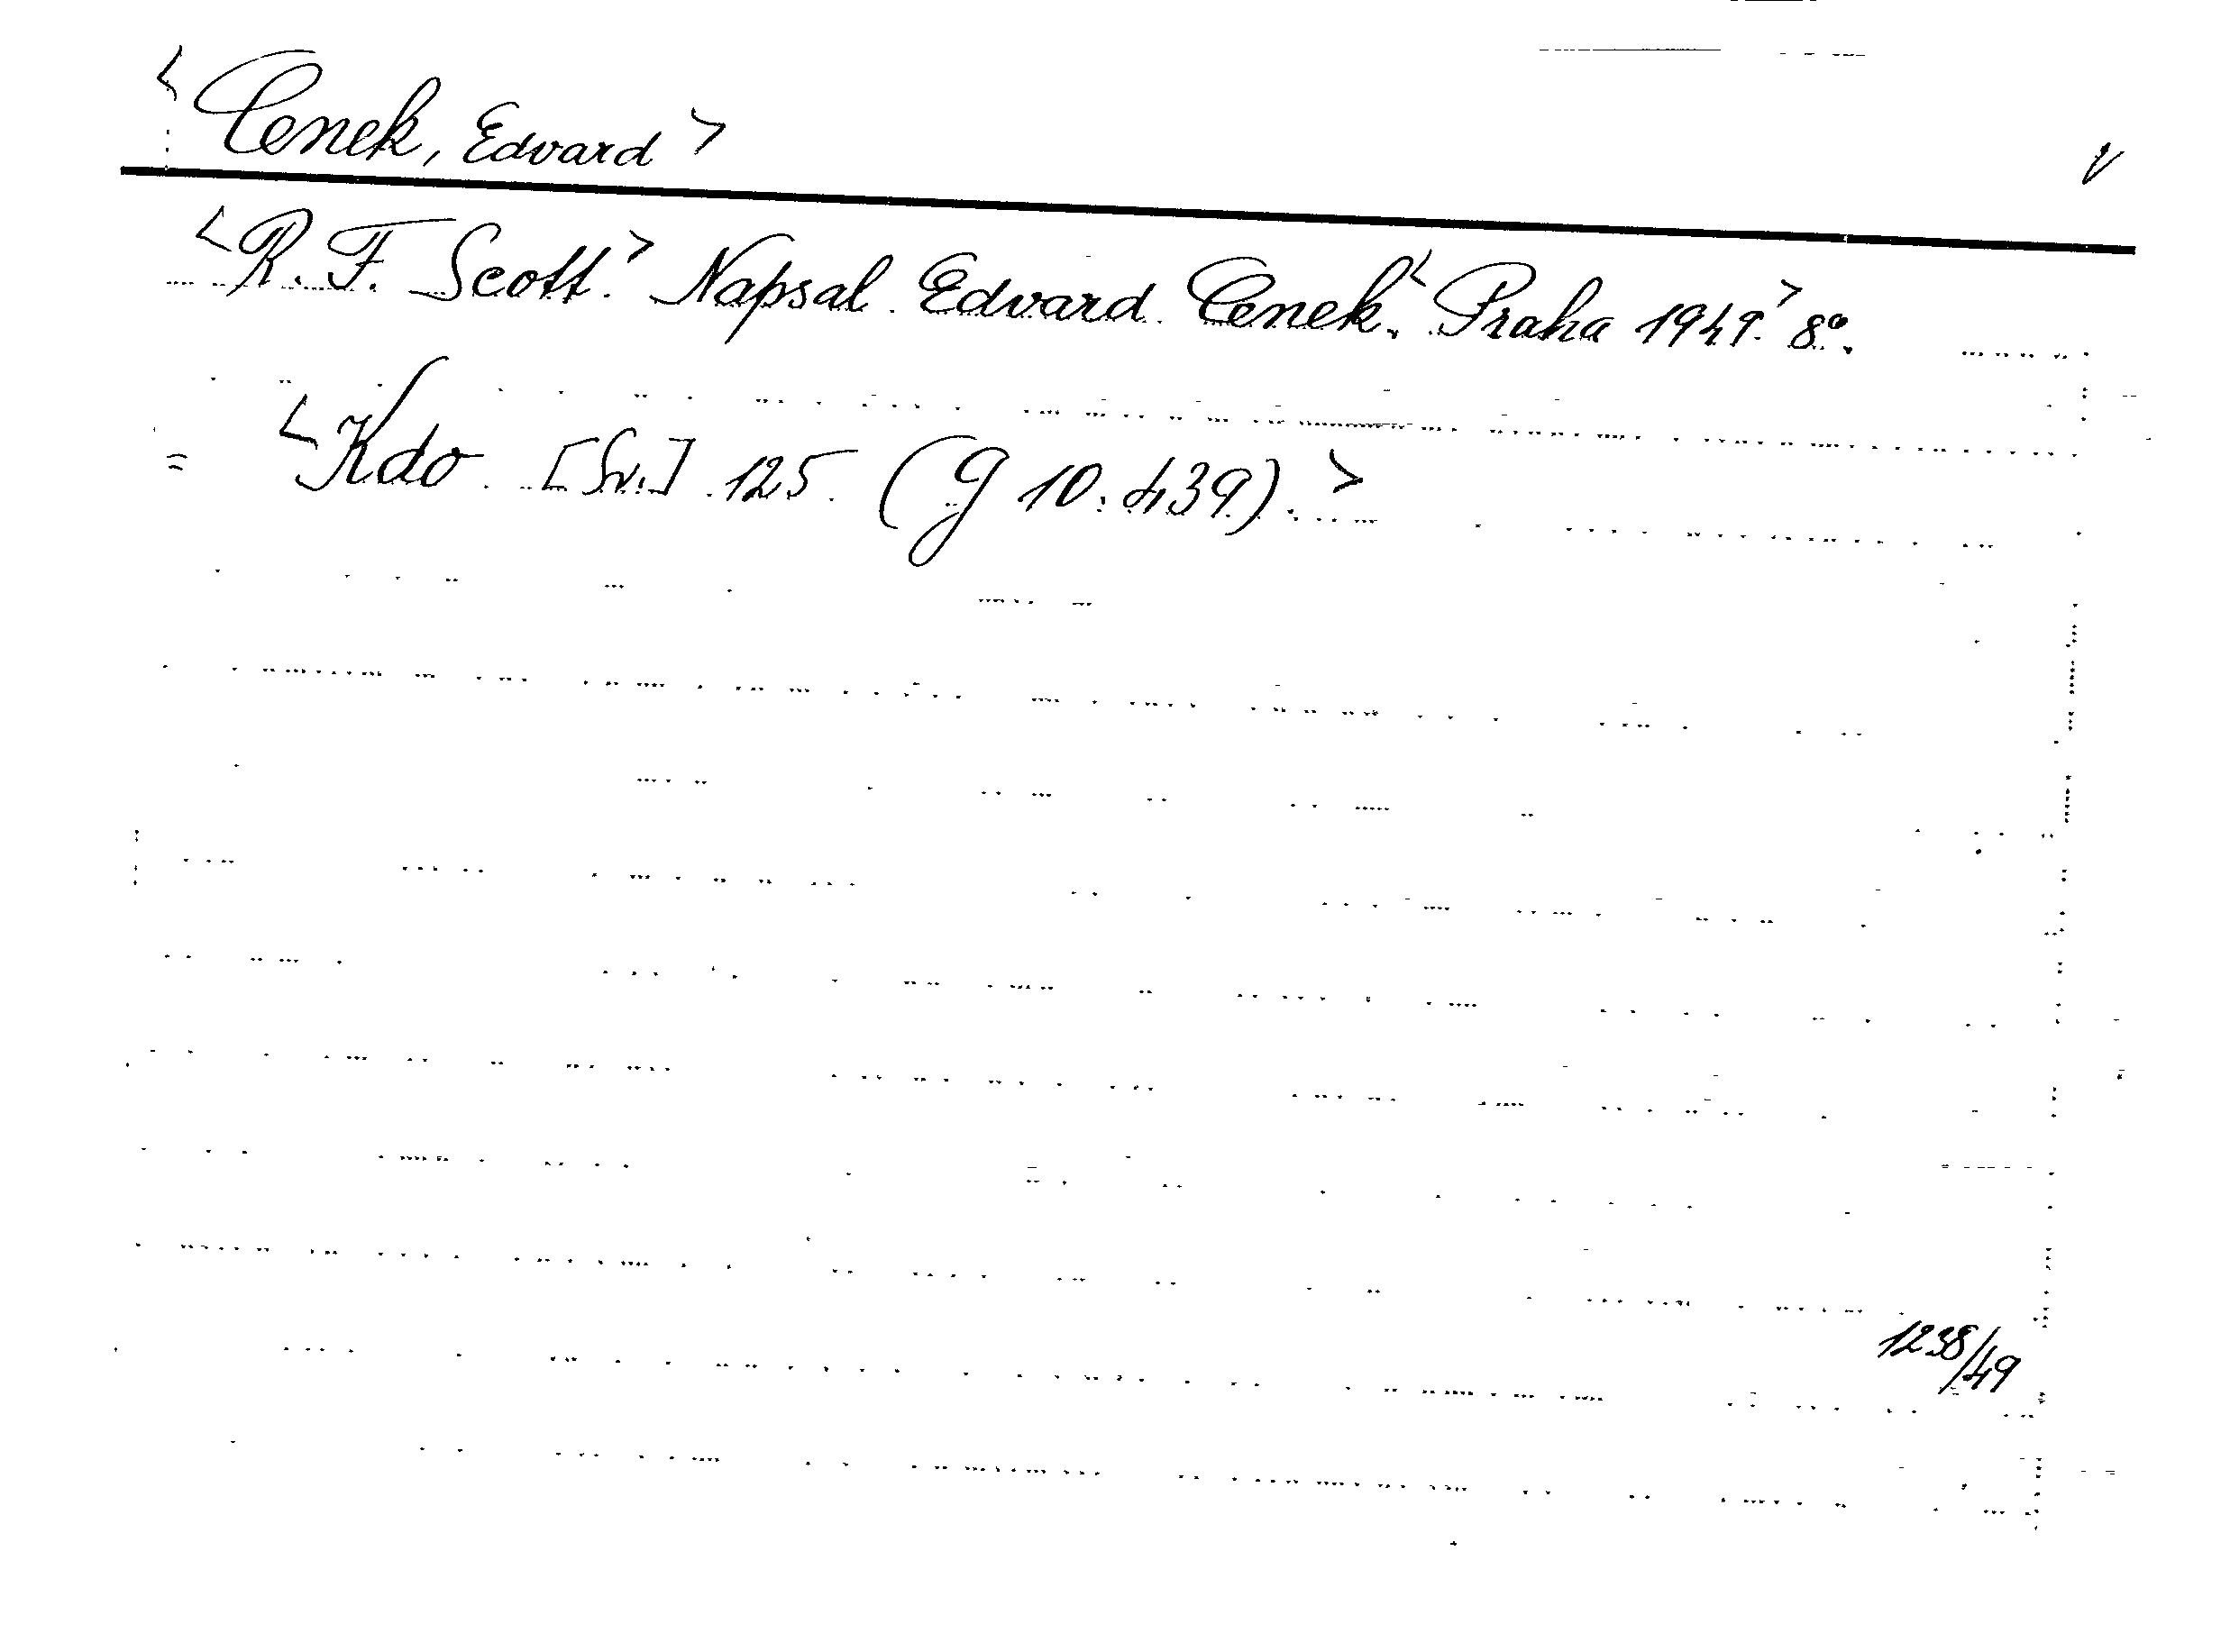 <Cenek, Edvard> V
<R. F. Scott.> Napsal Edvard Cenek. <Praha 1949.> 8°.
= <Kdo [Sv.] 125 (G 10.439).>
1238/49